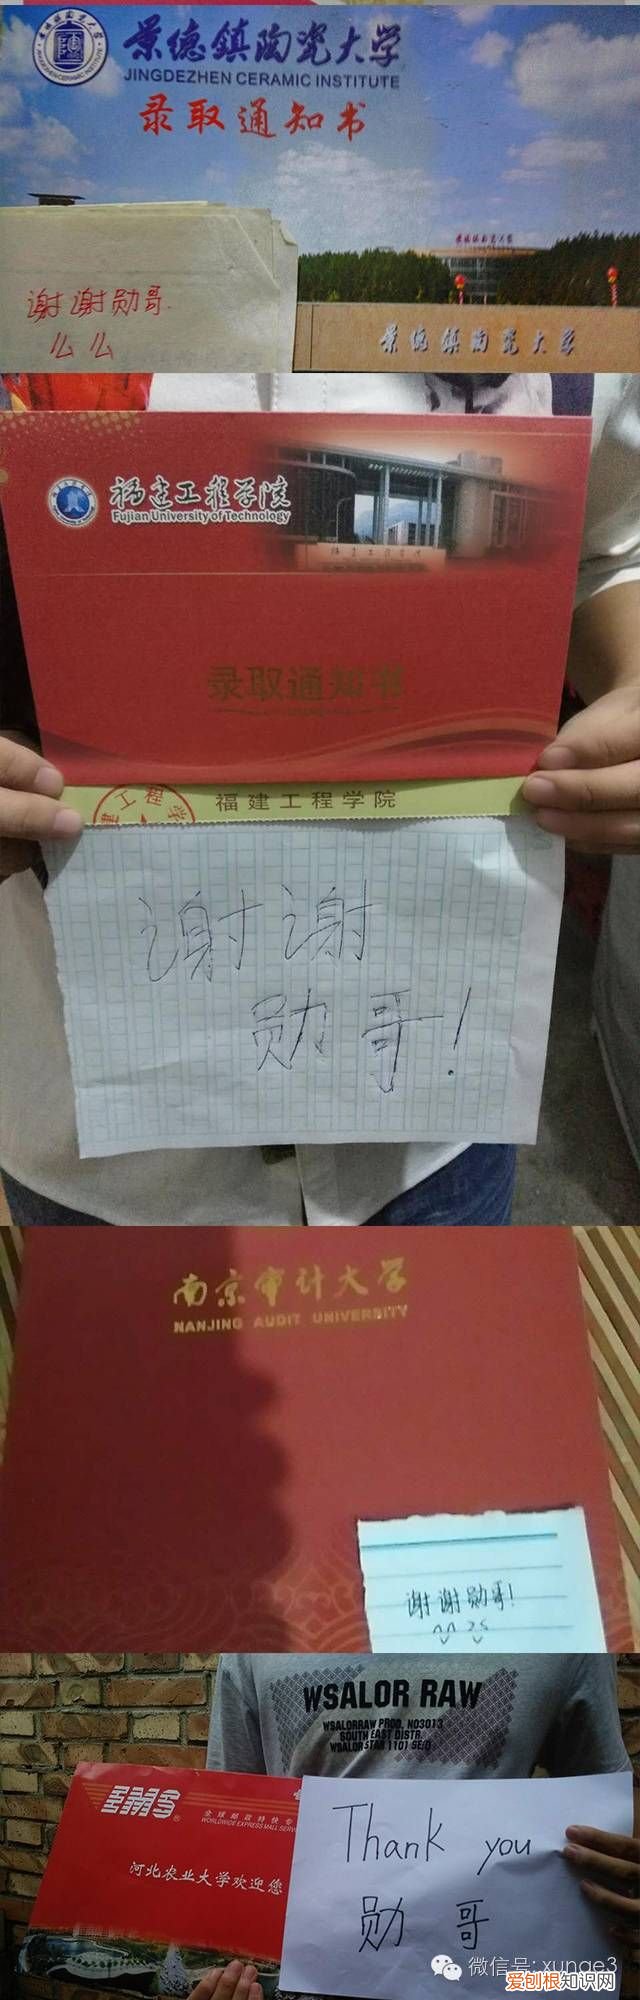 景德鎮陶瓷大学
JINGDEZHEN CERAMIC INSTITUTE
录取通知书
景德鎮陶瓷大学
谢谢勋哥.
么么
景德鎮陶瓷大学
福建工程学院
Fujian University of Technology
福建工程学院
录取通知书
建工程学
福建工程学院
谢谢
勋哥!
南京审计大学
NANJING AUDIT UNIVERSITY
谢谢勋哥!
WSALOR RAW
WSALORRAW PROD. NO3013
SOUTH EAST DISTR.
WSALOR STAR 1101 SE/D
EMS
全球邮政特快专
WORLDWIDE EXPRESS MAIL SERV
河北农业大学欢迎您
Thank you
勋哥
微信号: xunge3
爱刨根知识网